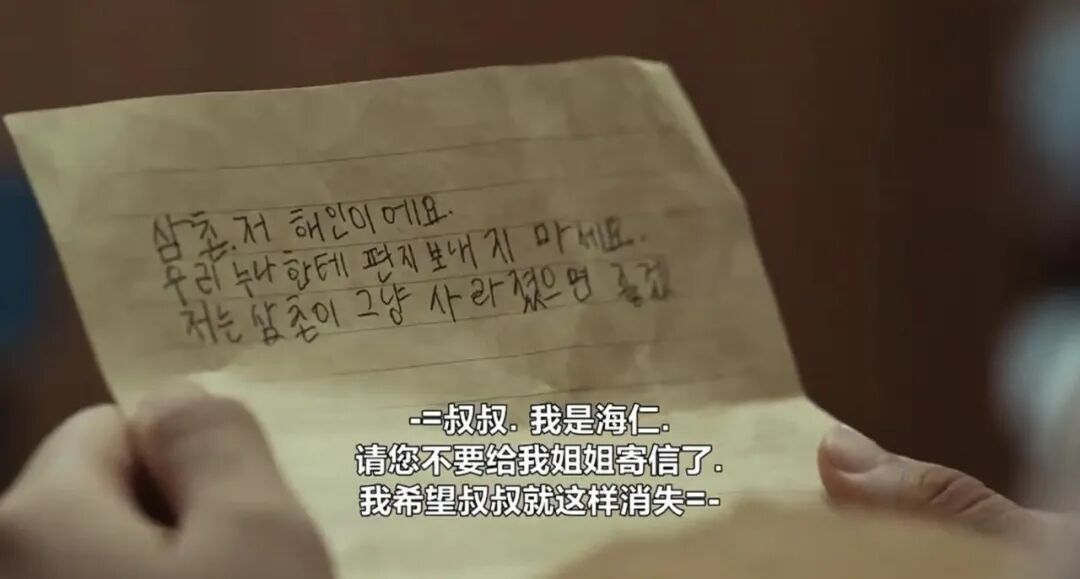 삼촌. 저 해인이에요.
우리 누나한테 편지 보내지 마세요.
저는 삼촌이 그냥 사라졌으면 좋겠
-=叔叔. 我是海仁.
请您不要给我姐姐寄信了.
我希望叔叔就这样消失=-